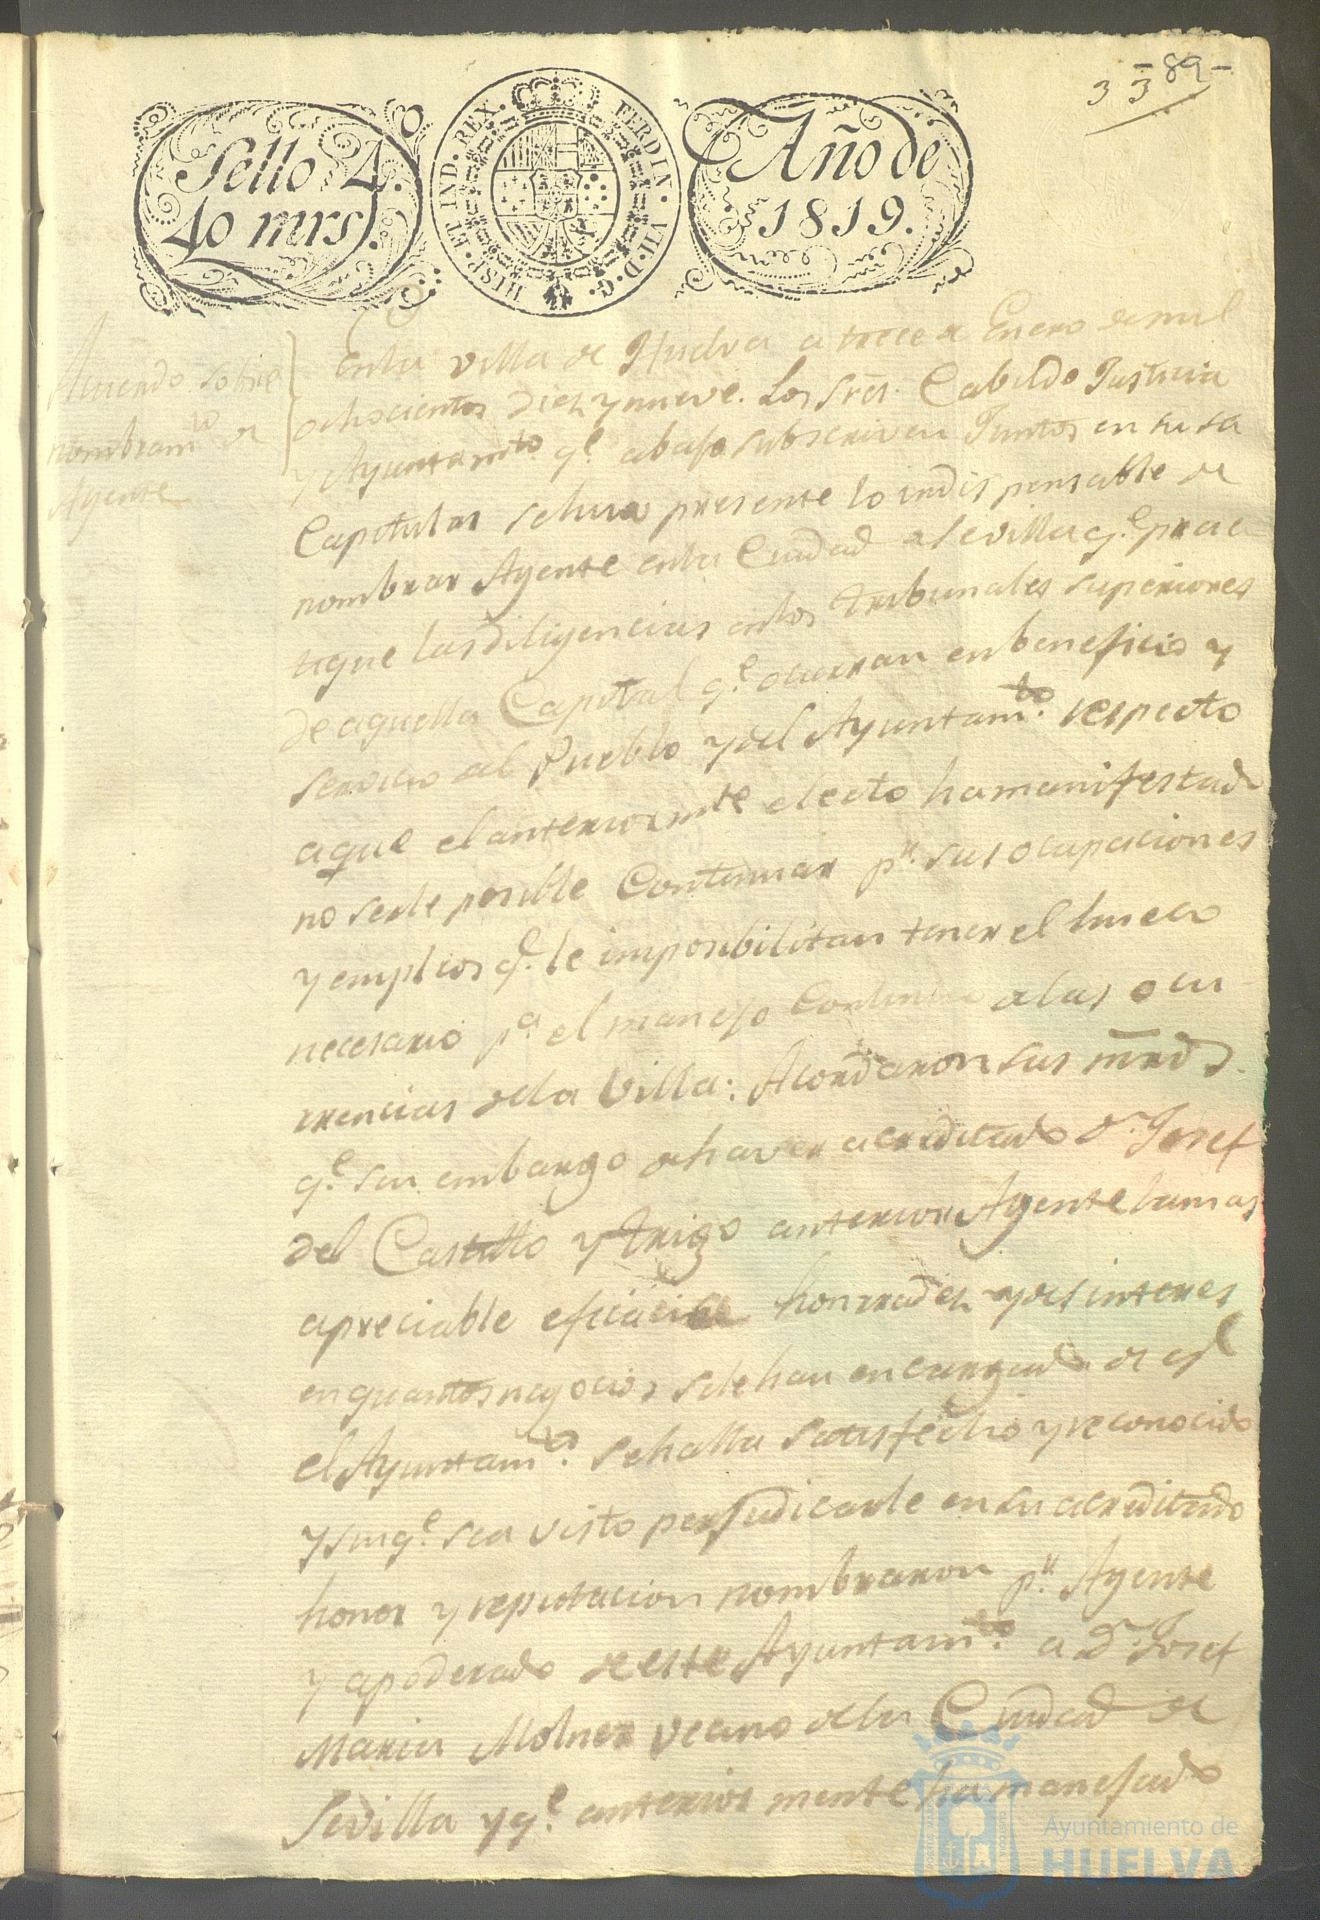 33 89
Sello 4.
40 mrs.
HISP. ET IND. REX. FERDIN. VII. D. G.
Año de
1819.
Acuerdo sobre
nombram.to de
Agente
En la villa de Huelva a trece de Enero de mil
ochocientos diez y nueve. Los Sres. Cabildo Justicia
y Ayuntam.to q.e abajo subscriven Juntos en su sa
Capitular se hizo presente lo indispensable de
nombrar Agente en la Ciudad de Sevilla q.e prac
tique las diligencias en los tribunales superiores
de aquella Capital q.e ocurran en beneficio y
servicio del Pueblo y del Ayuntam.to respecto
a que el anteriorm.te electo ha manifestado
no serle posible Continuar p.r sus ocupaciones
y empleos q.e le imposibilitan tener el hueco
necesario p.a el manejo Continuo de las ocu
rrencias de la Villa: Acordaron sus mrds.
q.e sin embargo de haver acreditado D.n Josef
del Castillo y Trigo anterior Agente la mas
apreciable eficacia honrradez y desinteres
en quantos negocios se le han encargado de q.e
el Ayuntam.to se halla satisfecho y reconocido
y sin q.e sea visto perjudicarle en su acreditado
honor y reputacion nombraron p.r Agente
y apoderado de este Ayuntam.to a D.n Josef
Maria Molner vecino de la Ciudad de
Sevilla y q.e anteriormente ha manejado
Ayuntamiento de
HUELVA